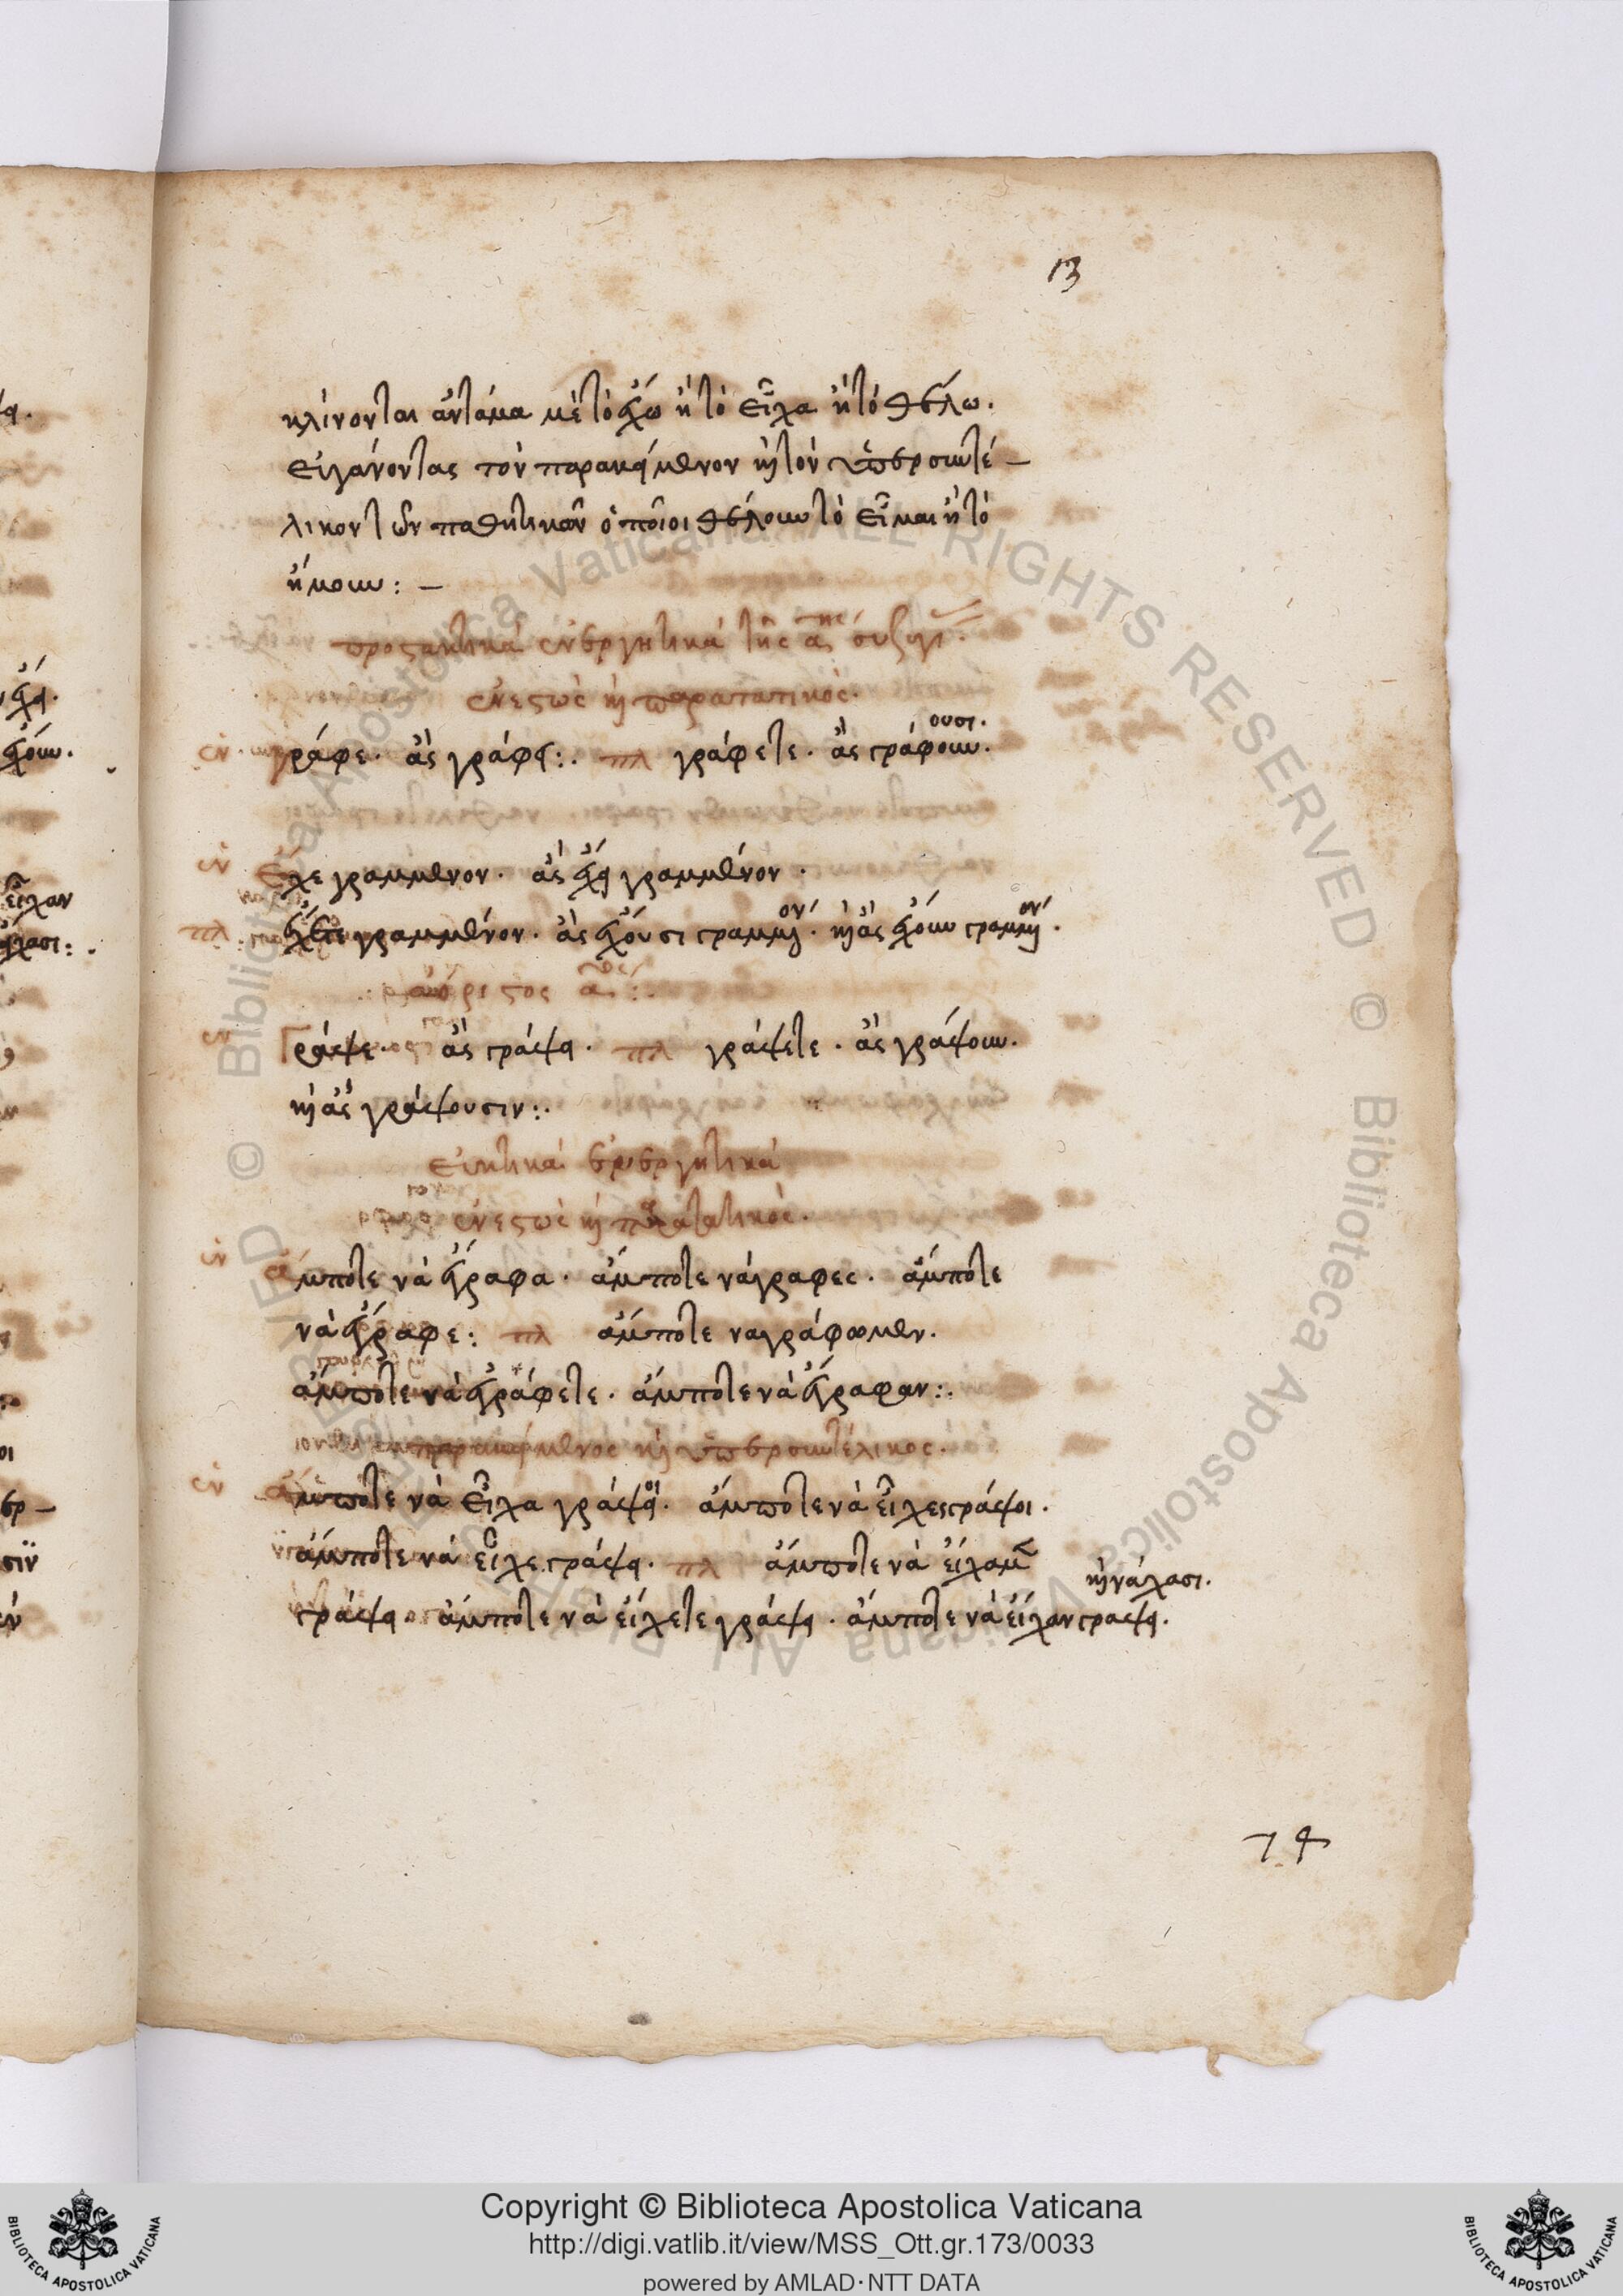 13
κλίνονται ἀντάμα μὲ τὸ ἔχω ἢ τὸ εἶχα ἢ τὸ θέλω.
εὐγάνοντας τὸν παρακείμενον καὶ τὸν ὑπερσυντέ-
λικον τῶν παθητικῶν ὁποῖοι θέλουν τὸ εἶμαι ἢ τὸ
ἤμουν: –
προστακτικὰ ἐνεργητικὰ τῆς αης συζυγί
ἐνεστὼς καὶ παρατατικός.
ἑν. γράφε. ἂς γράφει:. πλ γράφετε. ἂς γράφουν. ουσι.
ἑν ἔχε γραμμένον. ἂς ἔχει γραμμένον.
πλ. ἔχετε γραμμένον. ἂς ἔχουσι γραμμένον. καὶ ἂς ἔχουν γραμμένον.
ἀόριστος αος:.
ἑν Γράψε. ἂς γράψει. πλ γράψετε. ἂς γράψουν.
καὶ ἂς γράψουσιν:.
εὐκτικὰ ἐνεργητικά
ἐνεστὼς καὶ παρατατικός.
ἑν ἄμποτε νὰ ἔγραφα. ἄμποτε νάγραφες. ἄμποτε
νὰ ἔγραφε: πλ ἄμποτε ναγράφομεν.
ἄμποτε νὰ ἐγράφετε. ἄμποτε νὰ ἔγραφαν:.
παρακείμενος καὶ ὑπερσυντέλικος.
ἑν ἄμποτε νὰ εἶχα γράψει. ἄμποτε νὰ εἶχες γράψοι.
ἄμποτε νὰ εἶχε γράψει. πλ ἄμποτε νὰ εἴχαμεν
καὶ νάχασι.
γράψει. ἄμποτε νὰ εἴχετε γράψει. ἄμποτε νὰ εἴχαν γραψει.
Copyright © Biblioteca Apostolica Vaticana
http://digi.vatlib.it/view/MSS_Ott.gr.173/0033
powered by AMLAD·NTT DATA
BIBLIOTECA APOSTOLICA VATICANA
BIBLIOTECA APOSTOLICA VATICANA